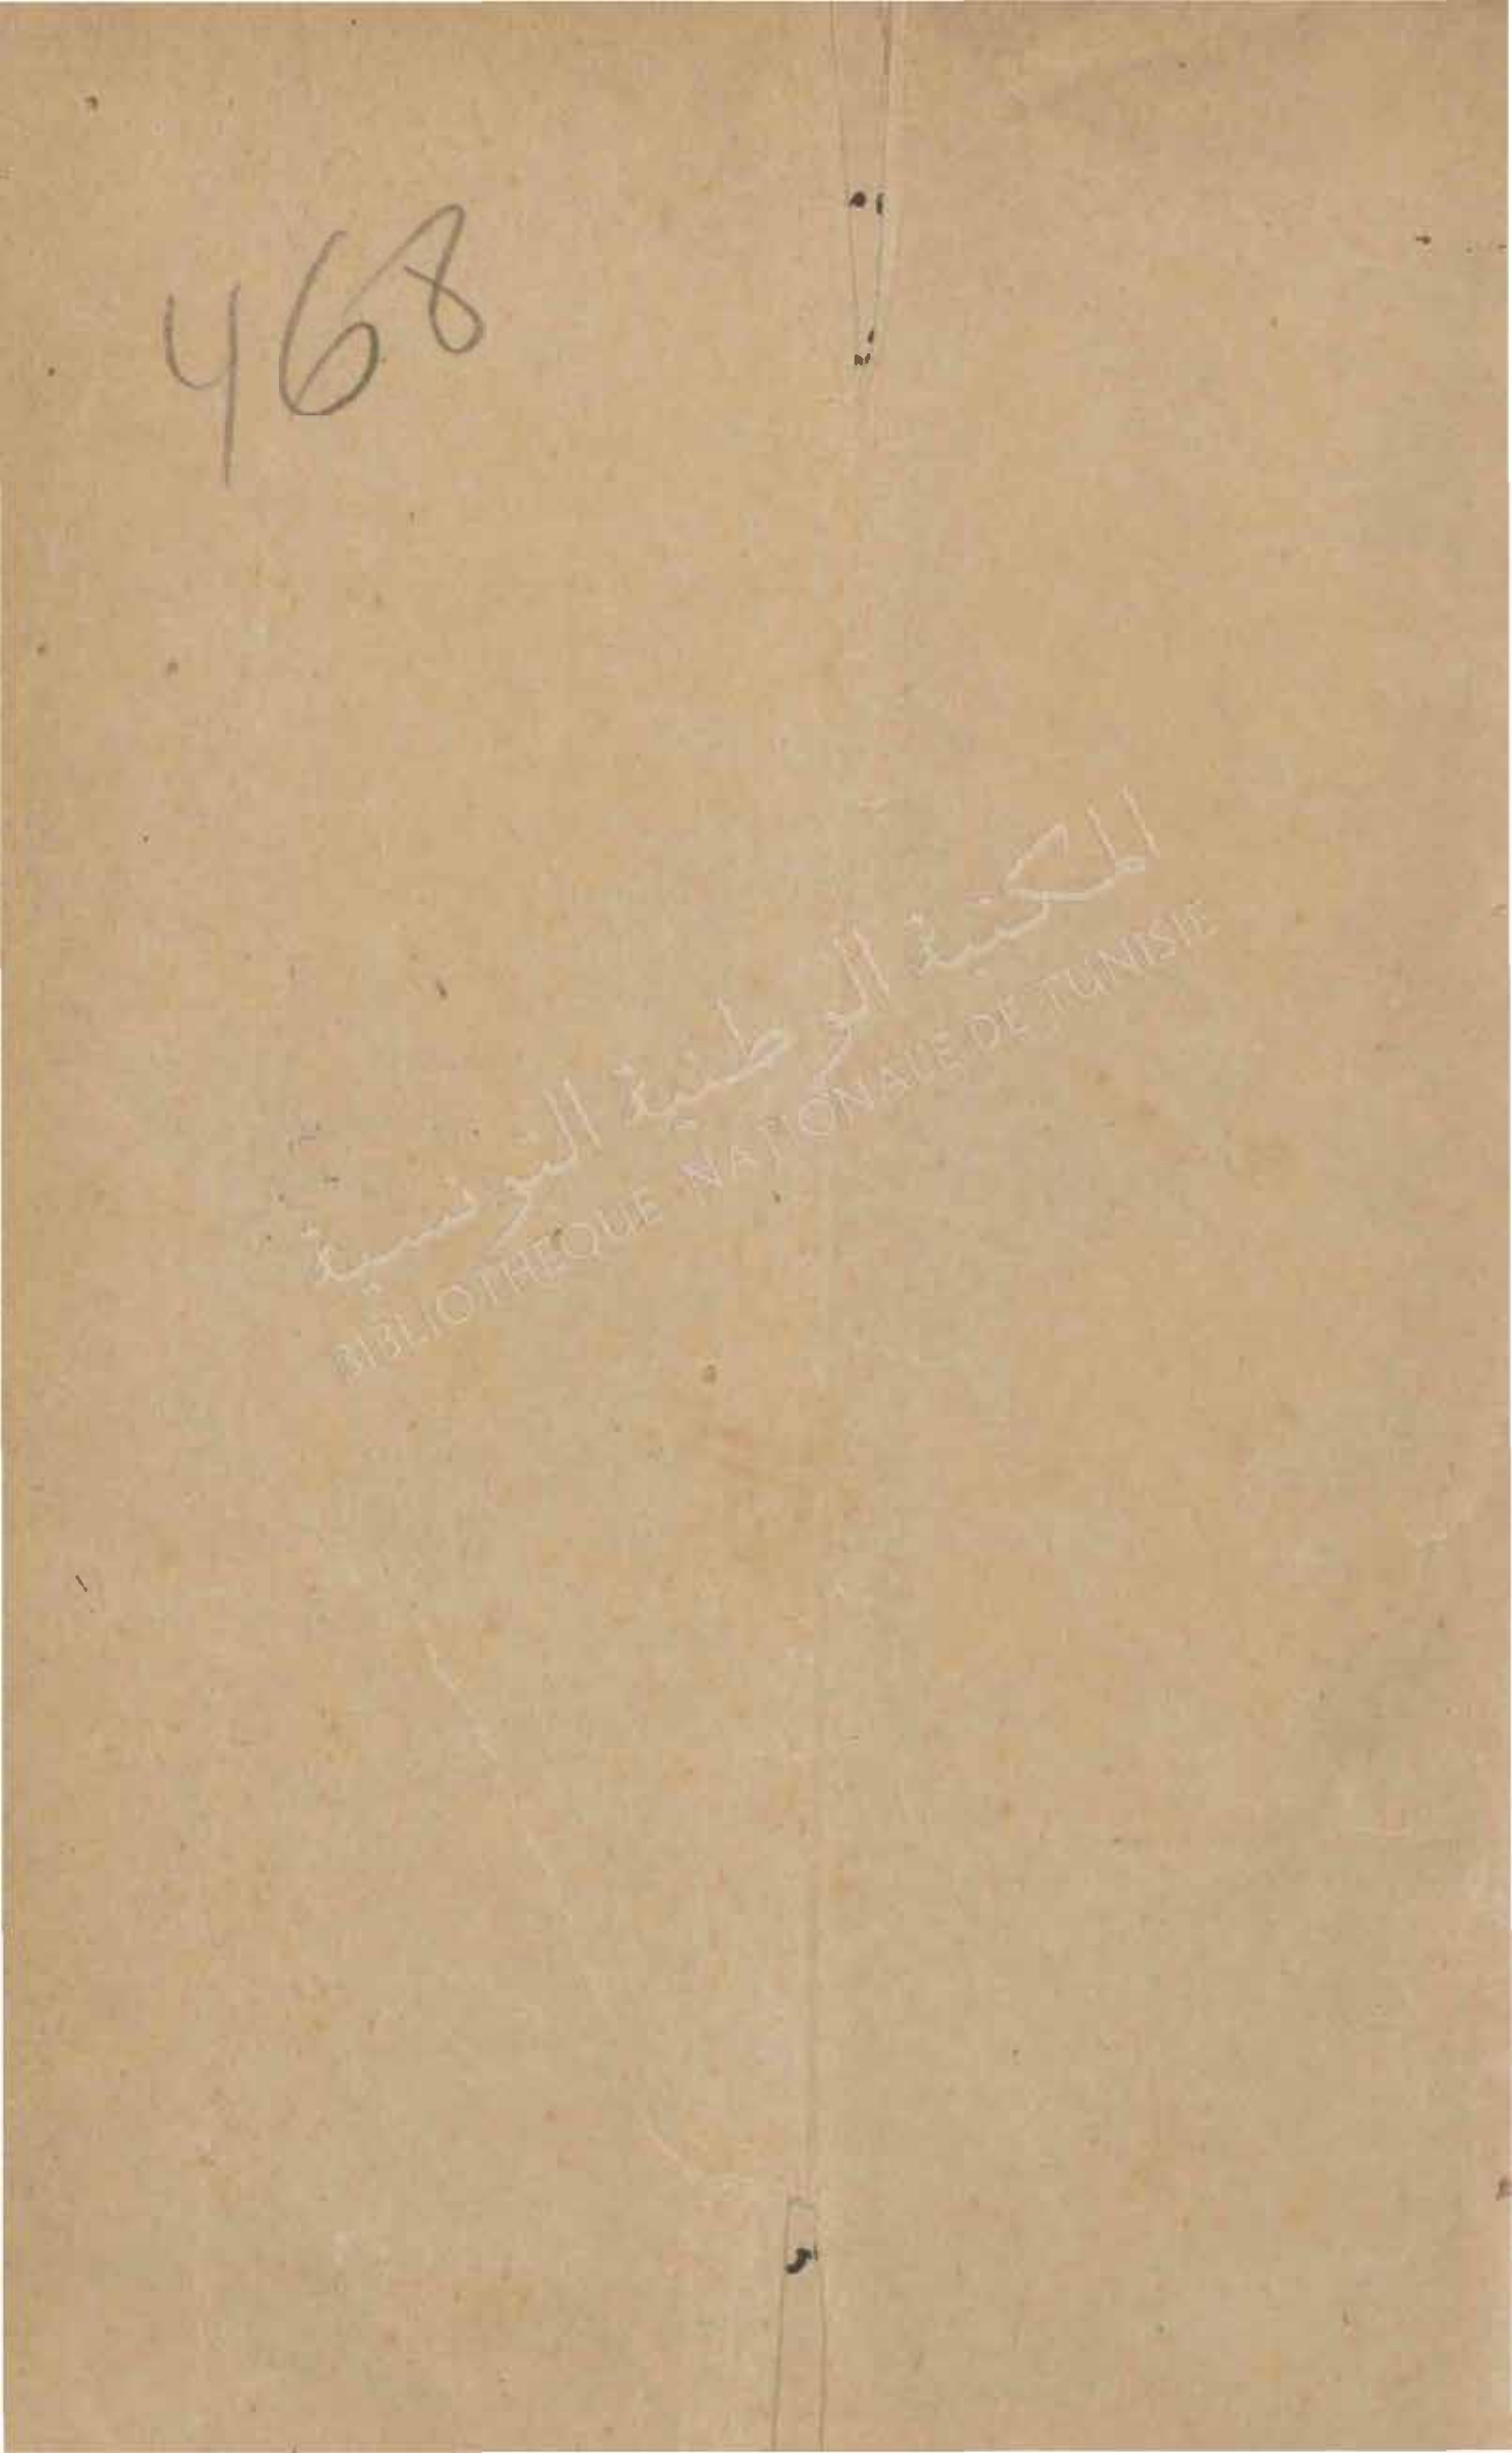 468
المكتبة الوطنية التونسية
BIBLIOTHEQUE NATIONALE DE TUNISIE